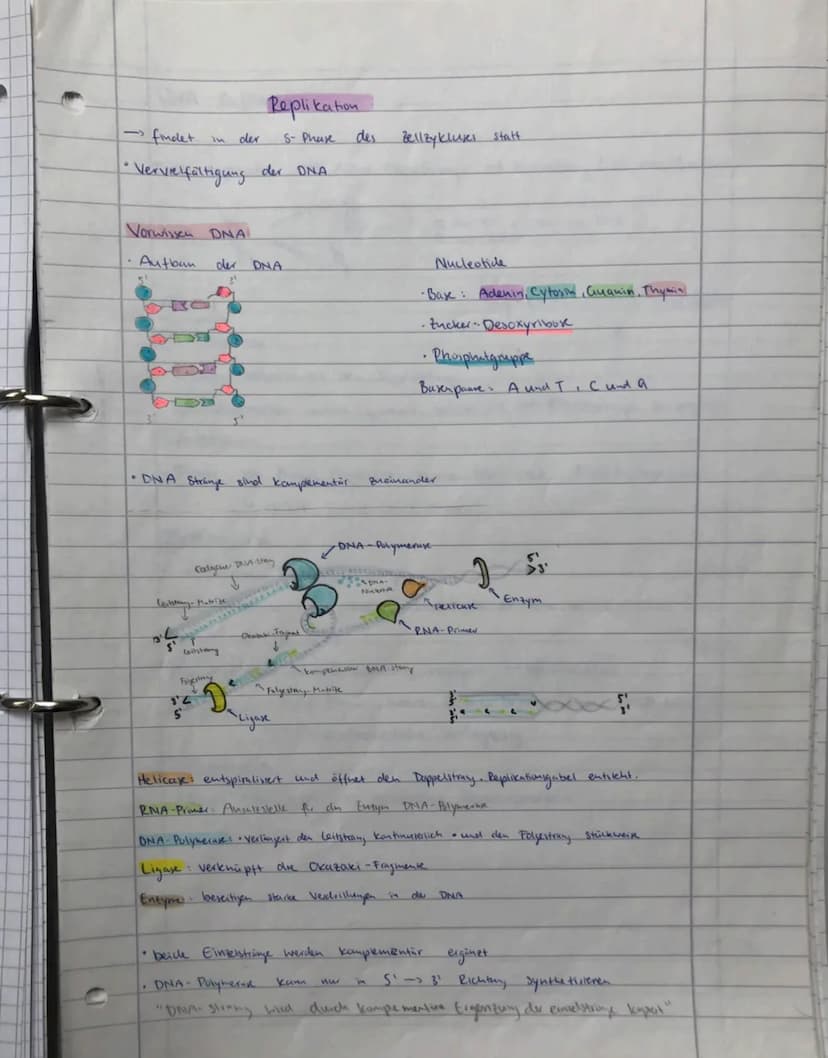 Replikation
→ findet in der S-Phase des Zellzykluses statt
• Vervielfältigung der DNA
Vorwissen DNA
• Aufbau der DNA
Nucleotide
5' 3'
• Base: Adenin, Cytosin, Guanin, Thymin
• Zucker: Desoxyribose
• Phosphatgruppe
Basenpaare: A und T, C und G
3' 5'
• DNA Stränge sind komplementär zueinander
DNA-Polymerase
5'
3'
DNA-
Enzym
Leitstrang-Matrize
Helicase
RNA-Primer
3'
5'
Leitstrang
Okazaki-Fragment
komplementärer DNA-Strang
Folgestrang
Folgestrang-Matrize
3'
5'
Ligase
5'
3'
Helicase: entspiralisiert und öffnet den Doppelstrang. Replikationsgabel entsteht.
RNA-Primer: Ansatzstelle für das Enzym DNA-Polymerase
DNA-Polymerase: • verlängert den Leitstrang kontinuierlich • und den Folgestrang stückweise
Ligase: verknüpft die Okazaki-Fragmente
Enzyme: beseitigen starke Verdrillungen in der DNA
• beide Einzelstränge werden komplementär ergänzt
• DNA-Polymerase kann nur in 5' → 3' Richtung synthetisieren
"DNA-Strang wird durch komplementäre Ergänzung der Einzelstränge kopiert"